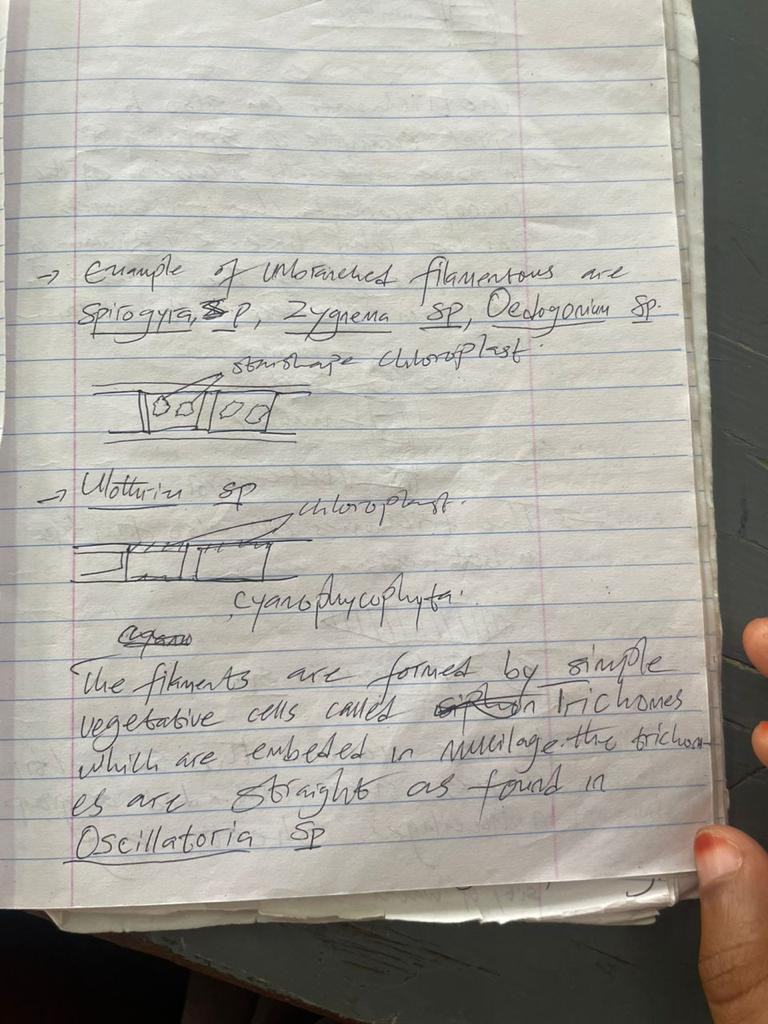 → Example of unbranched filamentous are
Spirogyra, Sp, Zygnema sp, Oedogonium sp.
starshape chloroplast.
→ Ulothrix sp
chloroplast.
Cyanophycophyta.
The filments are formed by simple
vegetative cells called Trichomes
which are embeded in mucilage. the trichom-
es are straight as found in
Oscillatoria sp